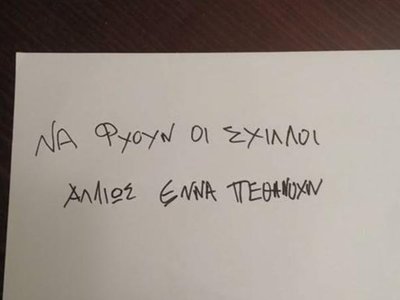 ΝΑ ΦΥΟΥΝ ΟΙ ΣΧΙΛΛΟΙ
ΑΛΛΙΩΣ ΕΝΝΑ ΠΕΘΑΝΟΥΝ